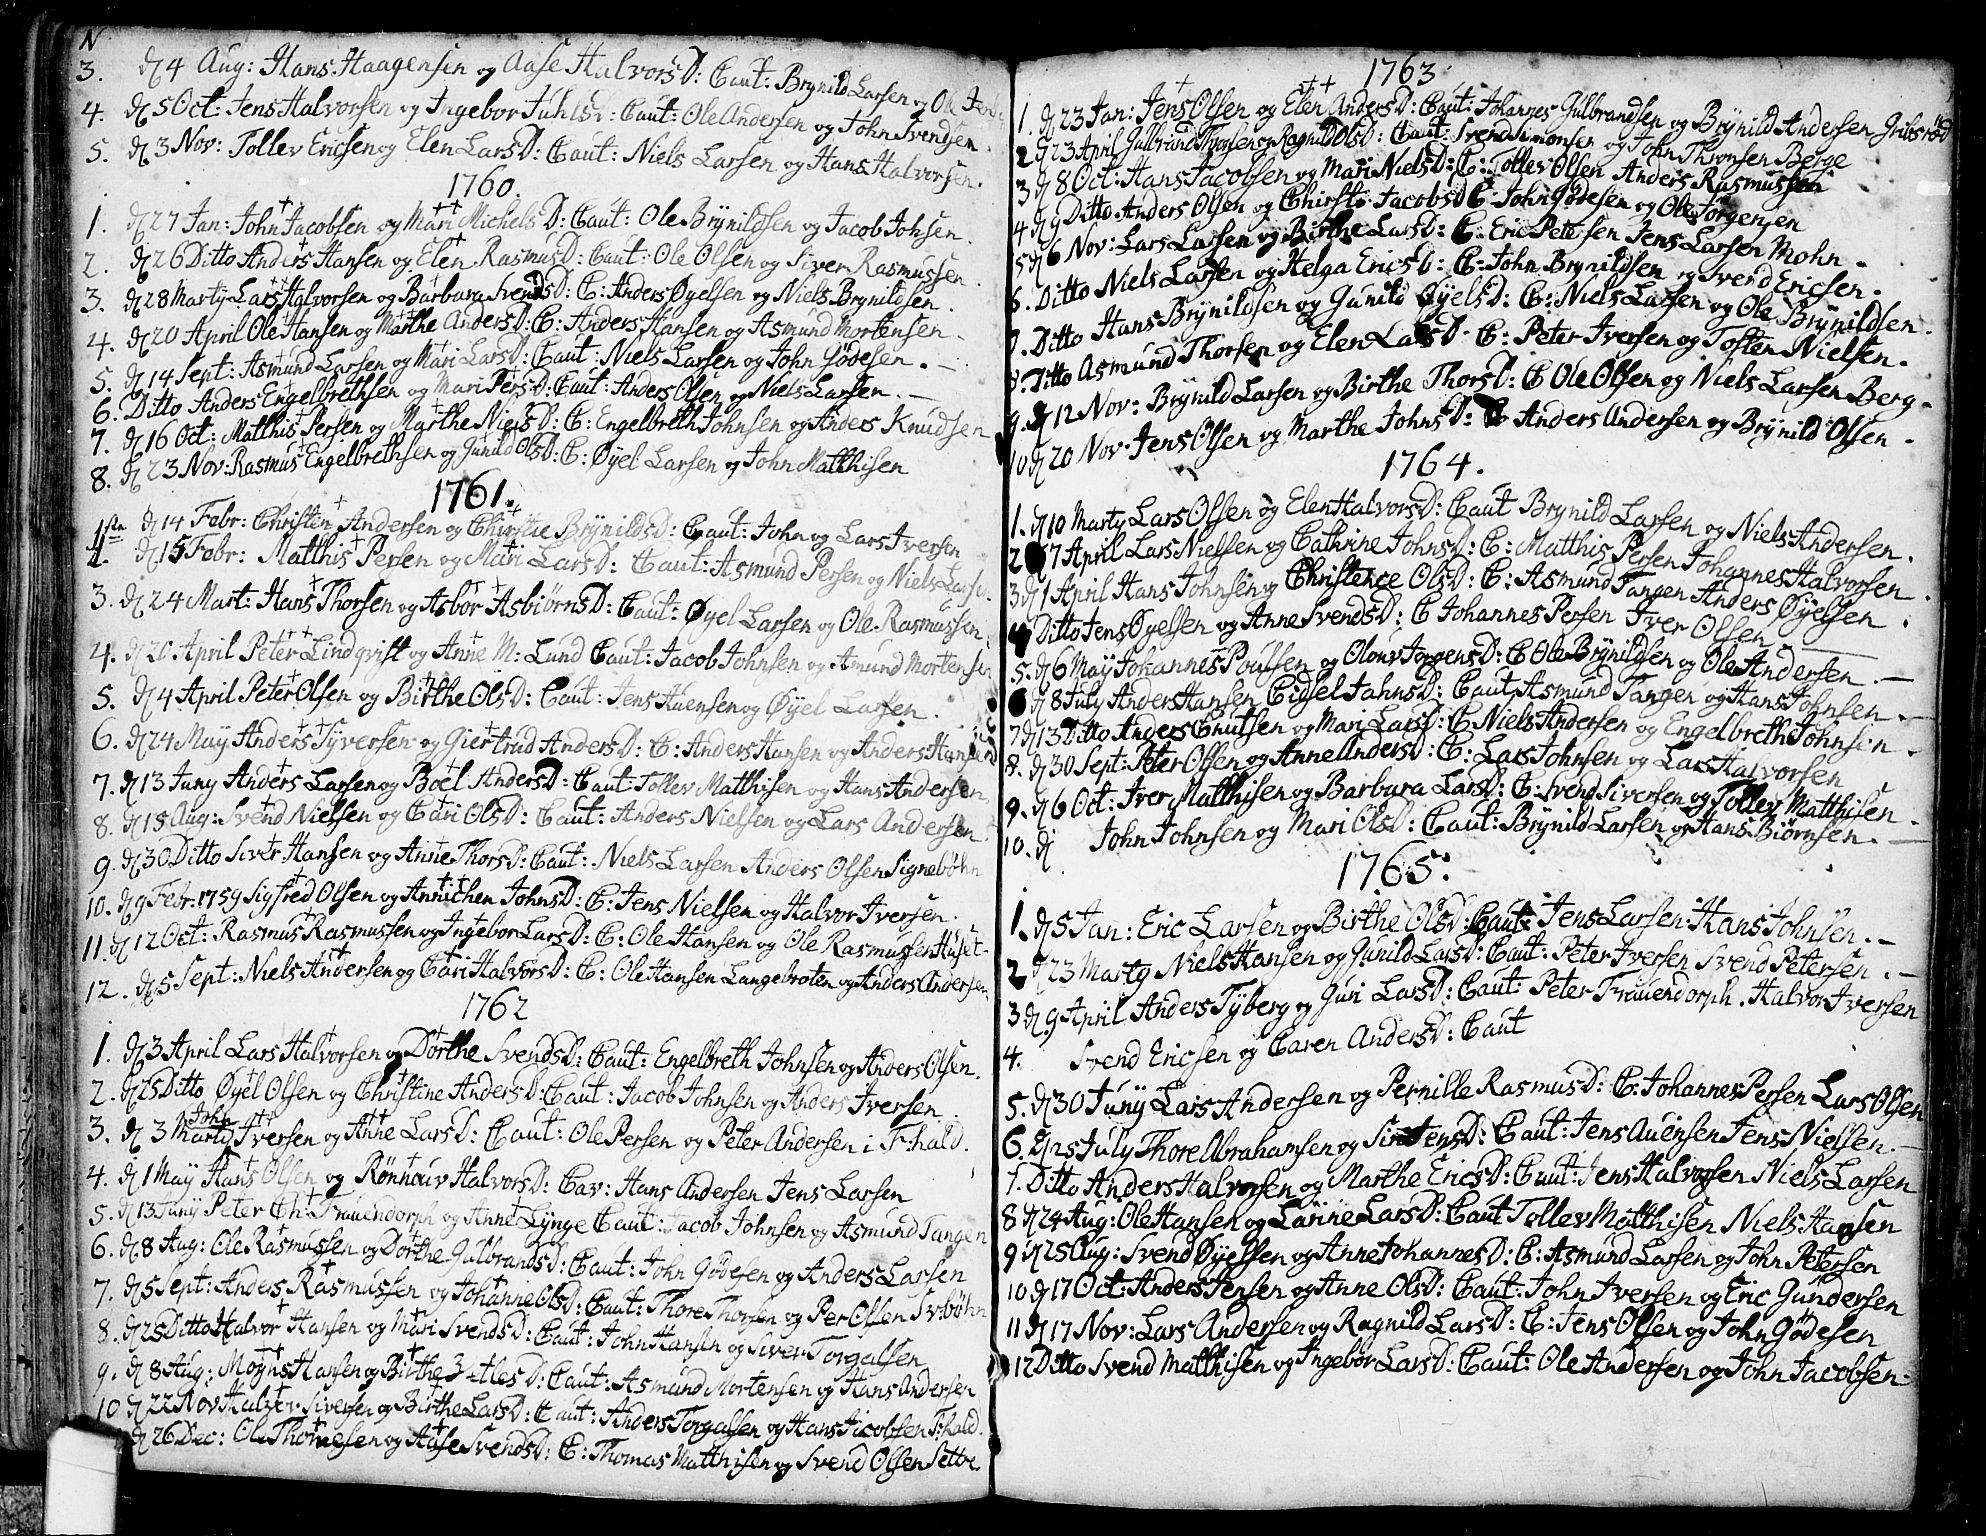 N
3. d 4 Aug: Hans Haagensen og Aase HalvorsD: Caut: Brynild Larsen og Ole
4. d 5 Oct: Jens Halvorsen og Ingebor JuhlsD: Caut: Ole Andersen og John Svendsen
5. d 3 Nov: Tollev Ericsen og Elen LarsD: Caut: Niels Larsen og Hans Halvorsen.
1760.
1. d 27 Jan: John Jacobsen og Mari MichelsD: Caut: Ole Brynildsen og Jacob Johsen.
2. d 26 Ditto Anders Hansen og Elen RasmusD: Caut: Ole Olsen og Siver Rasmussen
3. d 28 Marty Lars Halvorsen og Barbara SvendsD: C: Anders Øyelsen og Niels Brynildsen.
4. d 20 April Ole Hansen og Marthe AndersD: C: Anders Hansen og Asmund Mortensen.
5. d 14 Sept: Asmund Larsen og Mari LarsD: Caut: Niels Larsen og John Gödesen.
6. Ditto Anders Engelbrethsen og Mari PersD: Caut: Anders Olsen og Niels Larsen.
7. d 16 Oct: Matthis Persen og Marthe NielsD: C: Engelbreth Johnsen og Anders Knudsen
8. d 23 Nov: Rasmus Engelbrethsen og Gunild OlsD: C: Øyel Larsen og John Matthisen
1761.
1ste d 14 Febr: Christen Andersen og Chirstie BrynildsD: Caut: John og Lars Iversen
2. d 15 Febr: Matthis Persen og Mari LarsD: Caut: Asmund Persen og Niels Larsen
3. d 24 Mart: Hans Thorsen og Asbor AsbiørnsD: Caut: Øyel Larsen og Ole Rasmussen
4. d 20 April Peter Lindqvist og Anne M: Lund Caut: Jacob Johnsen og Amund Mortensen
5. d 4 April Peter Olsen og Birthe OlsD: Caut: Jens Auensen og Øyel Larsen.
6. d 24 May Anders Syversen og Giertrud AndersD: C: Anders Hansen og Anders Hansen
7. d 13 Juny Anders Larsen og Boel AndersD: Caut: Tollev Matthisen og Hans Andersen
8. d 15 Aug: Svend Nielsen og Cari OlsD: Caut: Anders Nielsen og Lars Andersen
9. d 30 Ditto Siver Hansen og Anne ThorsD: Caut: Niels Larsen Anders Olsen Signebøhn
10. d 9 Febr. 1759 Sigfred Olsen og Annichen JohnsD: C: Jens Nielsen og Halvor Iversen.
11. d 12 Oct: Rasmus Rasmussen og Ingebor LarsD: C: Ole Hansen og Ole Rasmussen Huset
12. d 5 Sept: Niels Andersen og Cari HalvorsD: C: Ole Hansen Langebroten og Anders Andersen
1762
1. d 3 April Lars Halvorsen og Dorthe SvendsD: Caut: Engelbreth Johnsen og Anders Olsen.
2. d 25 Ditto Øyel Olsen og Christine AndersD: Caut: Jacob Johnsen og Anders Iversen
3. d 3 Marty John Iversen og Anne LarsD: Caut: Ole Persen og Peter Andersen i F:hald.
4. d 1 May Hans Olsen og Rönnauv HalvorsD: Cav: Hans Andersen Jens Larsen
5. d 13 Juny Peter Ch: Frauendorph og Anne Lynge Caut: Jacob Johnsen og Asmund Tangen
6. d 8 Aug: Ole Rasmussen og Dorthe GulbrandsD: Caut: John Gödesen og Anders Larsen
7. d 5 Sept: Anders Rasmussen og Johanne OlsD: Caut: Thore Thorsen og Per Olsen
8. d 25 Ditto Halvor Hansen og Mari SvendsD: Caut: John Hansen og Siver Torgalsen
9. d 8 Aug: Mogns Hansen og Birthe D: Caut: Asmund Mortensen og Hans Andersen
10 d 22 Nov Halvor Siversen og Birthe LarsD: Caut: Anders Torgalsen og Hans Jacobsen F:hald.
d 26 Dec: Ole Thomesen og Aase SvendsD: C: Thomas Matthisen og Svend Olsen
1763
1. d 23 Jan: Jens Olsen og Elen AndersD: Caut: Johannes Gulbrandsen og Brynild Andersen Gribsröd
2 d 23 April Gulbrand Thorsen og Ragnild OlsD: Caut: Svend Simonsen og John Thronsen Berge
3 d 8 Oct: Hans Jacobsen og Mari NielsD: C: Tollev Olsen Anders Rasmussen
4 d 9 Ditto Anders Olsen og Chirsti JacobsD C: John Gödesen og Ole Jörgensen
5 d 6 Nov: Lars Larsen og Birthe LarsD: C: Eric Petersen Jens Larsen Mohn.
6. Ditto Niels Larsen og Helga EricsD: C: John Brynildsen og Svend Ericsen.
7. Ditto Hans Brynildsen og Gunild ØyelsD: C: Niels Larsen og Ole Brynildsen.
8. Ditto Asmund Thorsen og Elen LarsD. C: Peter Iversen og Tosten Nielsen.
9. d 12 Nov: Brynild Larsen og Birthe ThorsD: C Ole Olsen og Niels Larsen Berg.
10 d 20 Nov. Jens Olsen og Marthe JohnsD: C Anders Andersen og Brynild Olsen.
1764.
1. d 10 Marty Lars Olsen og Elen HalvorsD: Caut Brynild Larsen og Niels Andersen.
2 7 April Lars Nielsen og Cathrine JohnsD: C: Matthis Persen Johannes Halvorsen
3 d 1 April Hans Johnsen og Christence OlsD: C: Asmund Tangen Anders Øyelsen.
4 Ditto Jens Øyelsen og Anne SvendsD: C Johannes Persen Iver Olsen
5. d 6 May Johannes Poulsen og Olouv JorgensD: C Ole Brynildsen og Ole Andersen.
d 8 July Anders Hansen Cidsel JahnsD: Caut Asmund Tangen og Hans Johnsen.
7 d 13 Ditto Anders Cnutsen og Mari LarsD: C Niels Andersen og Engelbreth Johnsen.
8. d 30 Sept: Peter Olsen og Anne AndersD: C: Lars Johnsen og Lars Halvorsen
9. d 6 Oct: Iver Matthisen og Barbara LarsD: C: Svend Siversen og Tollev Matthisen.
10. d John Johnsen og Mari OlsD: Caut: Brynild Larsen og Hans Biørnsen.
1765.
1. d 5 Jan: Eric Larsen og Birthe OlsD: Caut: Jens Larsen Hans Johnsen.
2 d 23 Marty Niels Hansen og Gunild LarsD: Caut: Peter Iversen Svend Petersen.
3 d 9 April Anders Tyberg og Guri LarsD: Caut: Peter Frauendorph. Halvor Iversen
4. Svend Ericsen og Caren AndersD: Caut
5. d 30 Juny Lars Andersen og Pernille RasmusD: C: Johannes Persen Lars Olsen
6. d 25 July Thore Abrahamsen og Siri JensD: Caut: Jens Auensen Jens Nielsen.
7. Ditto Anders Halvorsen og Marthe EricsD: Caut: Jens Halvorsen Niels Larsen
8 d 24 Aug: Ole Hansen og Larine LarsD: Caut Tollev Matthisen Niels Hansen
9 d 25 Aug: Svend Øyelsen og Anne JohannesD: C: Asmund Larsen og John Petersen
10 d 17 Oct: Anders Jensen og Anne OlsD: Caut: John Iversen og Eric Gundersen
11 d 17 Nov: Lars Andersen og Ragnild LarsD: C: Jens Olsen og John Gödesen
12 Ditto Svend Matthisen og Ingebor LarsD: Caut: Ole Andersen og John Jacobsen